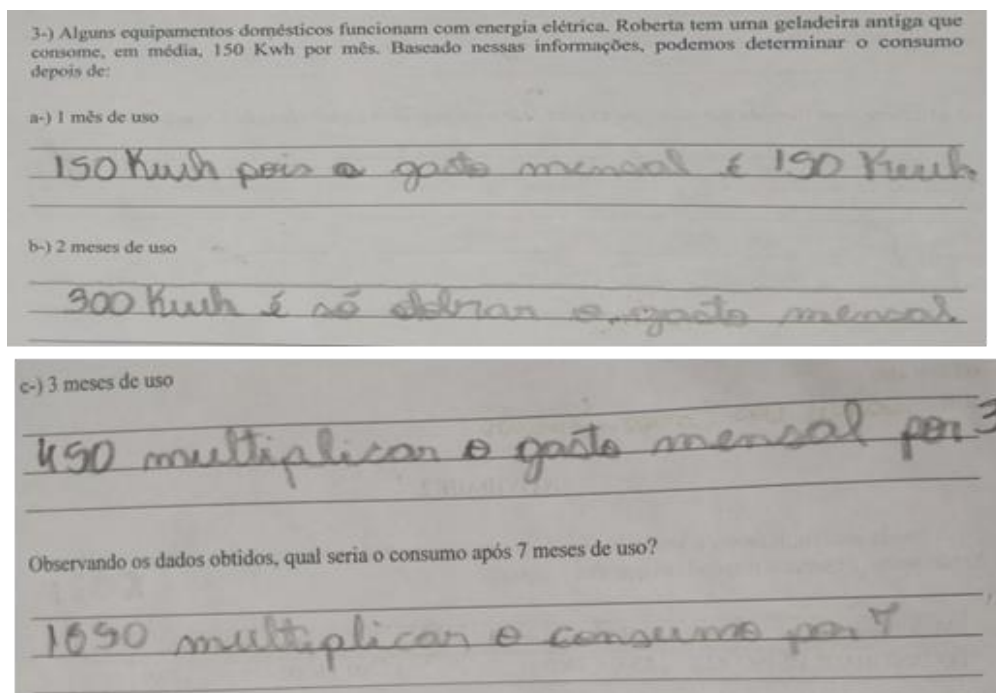 3-) Alguns equipamentos domésticos funcionam com energia elétrica. Roberta tem uma geladeira antiga que
consome, em média, 150 Kwh por mês. Baseado nessas informações, podemos determinar o consumo
depois de:
a-) 1 mês de uso
150 Kwh pois o gasto mensal é 150 Kwh
b-) 2 meses de uso
300 Kwh é só dobrar o gasto mensal
c-) 3 meses de uso
450 multiplicar o gasto mensal por 3
Observando os dados obtidos, qual seria o consumo após 7 meses de uso?
1050 multiplicar o consumo por 7